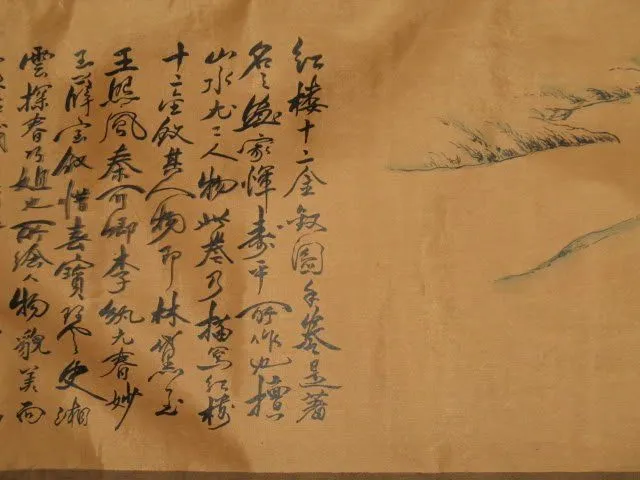 红楼十二金釵圖手卷是著
名之画家惲壽平所作也擅
山水尤工人物此卷乃描寫红楼
十二金釵其人物即林黛玉
王熙凤秦可卿李紈元春妙
玉薛宝釵惜春寶琴史湘
雲探春巧姐也所繪人物貌美而